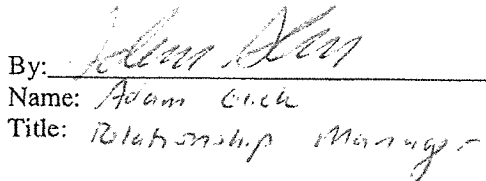 By:
Name: Adam
Title: Relationship Manager